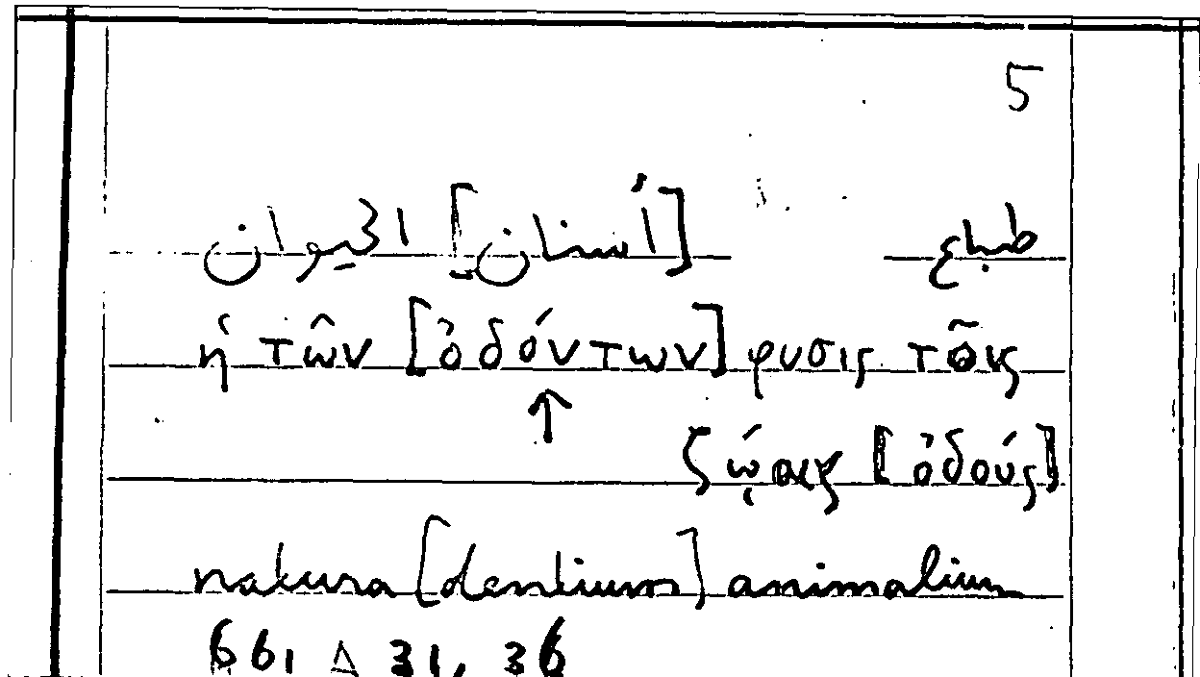 5
طباع [أسنان] الحيوان
ἡ τῶν [ὀδόντων] φυσις τοῖς
↑
ζῴοις [ὀδούς]
natura [dentium] animalium
661 31, 36